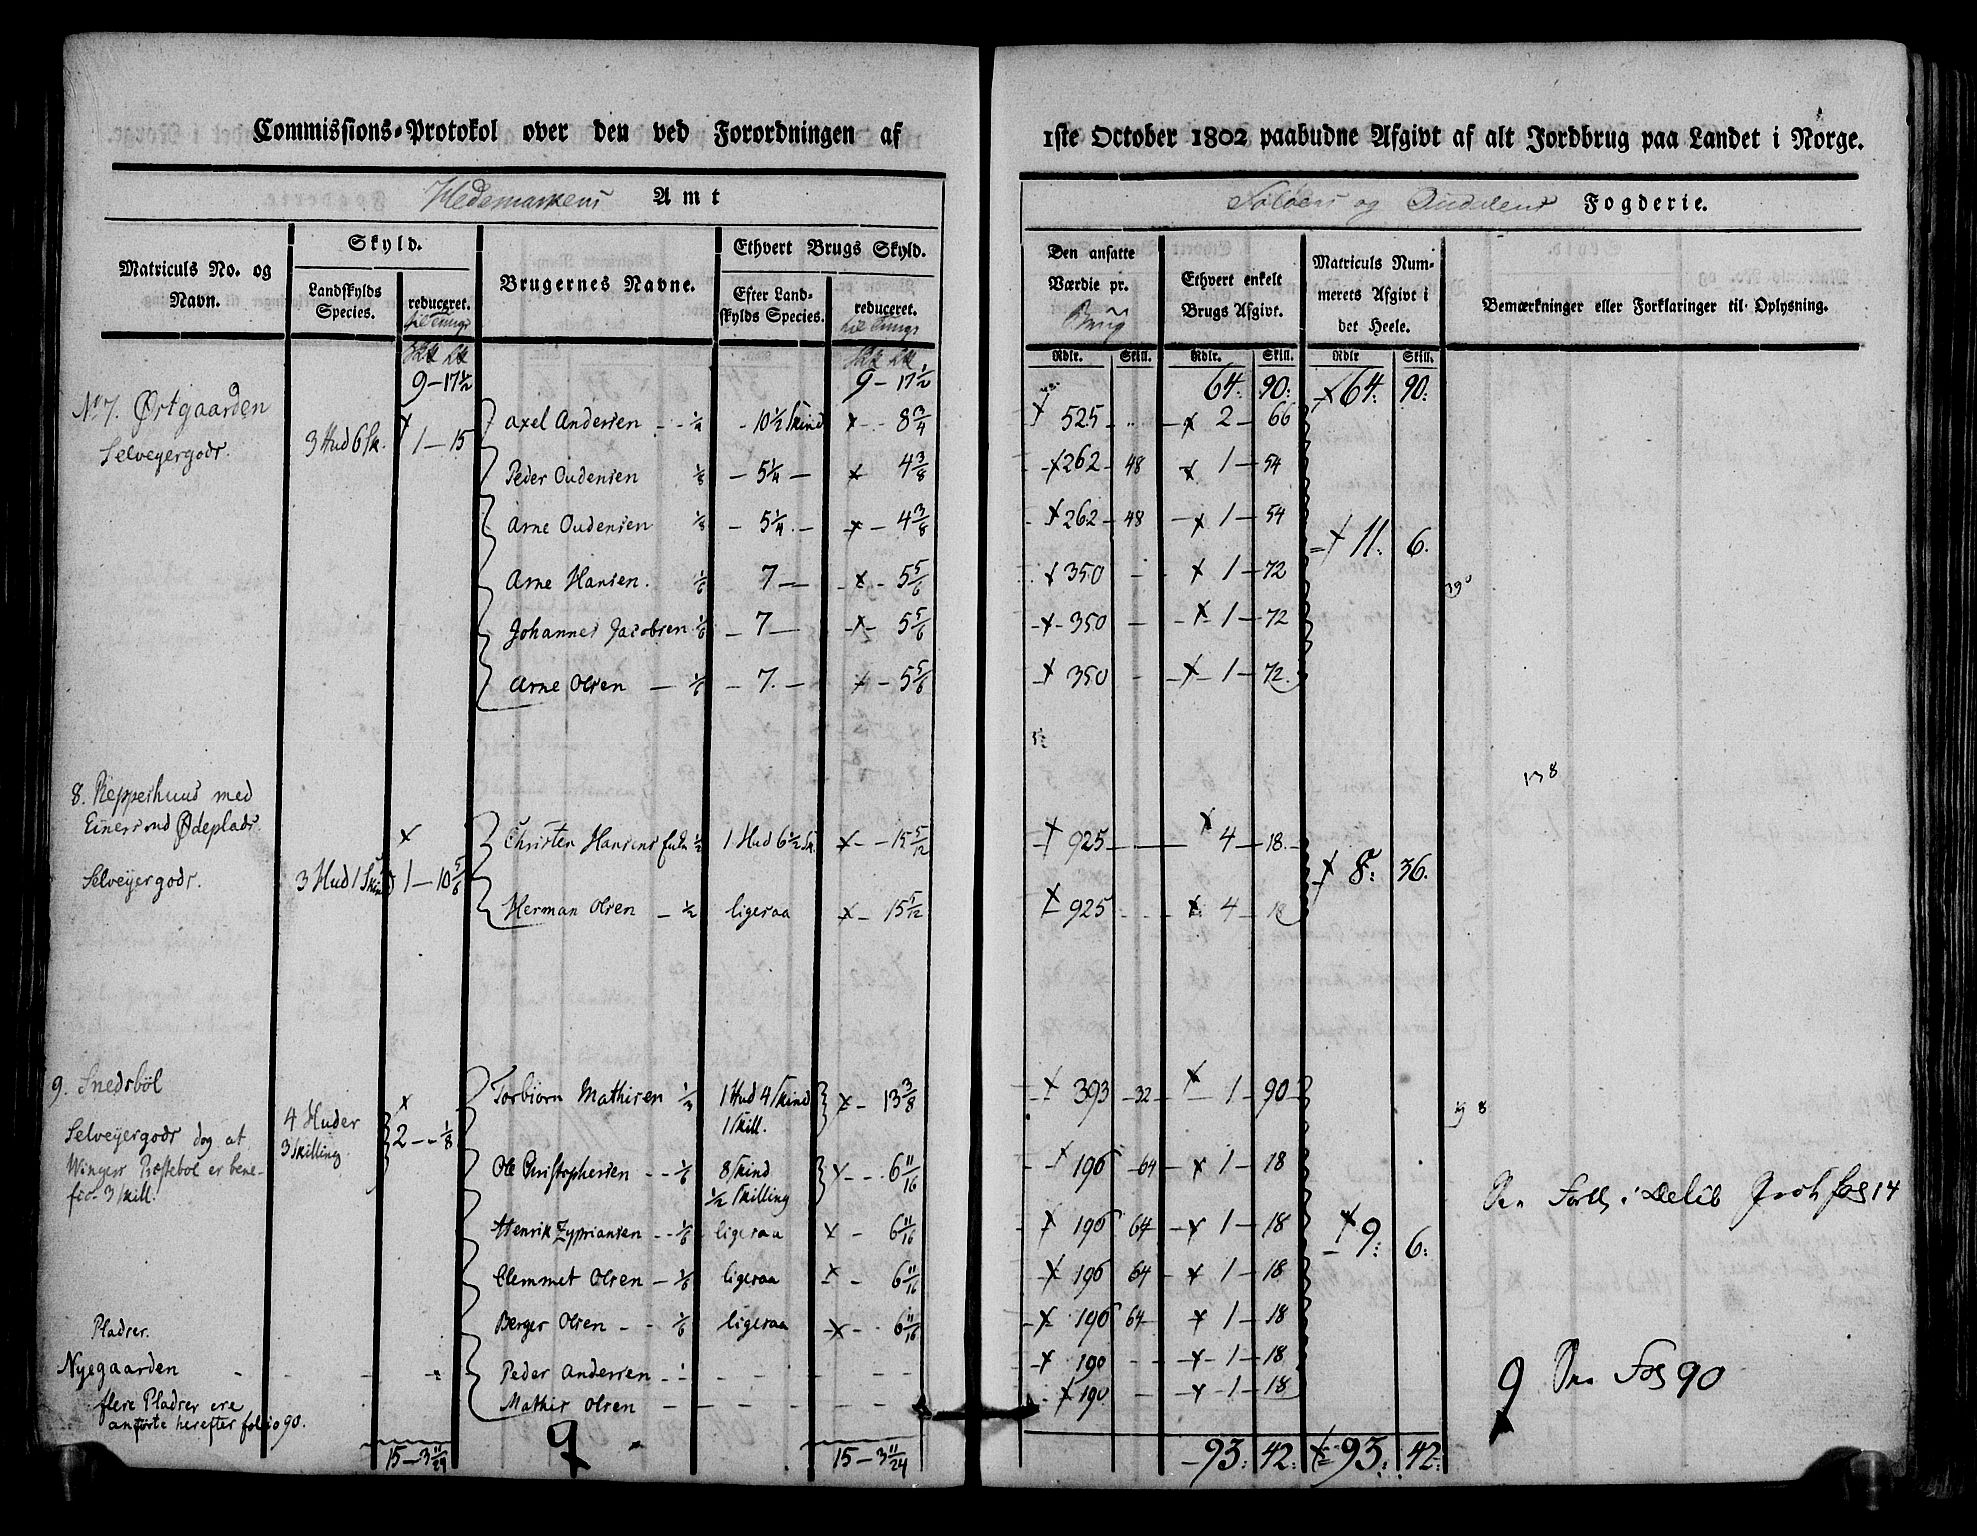 Commissions-Protokol over den ved Forordningen af 1ste October 1802 paabudne Afgivt af alt Jordbrug paa Landet i Norge.
Hedemarkens Amt
Soløers og Oudalens Fogderie.
Matriculs No. og Navn.
Skyld.
Landskylds Species.
reduceret.
til Tunge
Brugernes Navne.
Ethvert Brugs Skyld.
Efter Landskylds Species.
reduceret.
til Tunge
Den ansatte Værdie pr.
Brug
Ethvert enkelt Brugs Afgivt.
Matriculs Nummerets Afgivt i det Heele.
Bemærkninger eller Forklaringer til Oplysning.
Rdlr. Skill. Rdlr. Skill. Rdlr Skill.
9 - 17 1/2 9 - 17 1/2 64. 90: x 64. 90:
No 7. Østgaarden
Selveyergods.
3 Hud 6 Sk. x 1 - 15
Axel Andersen - - 1/4 - 10 1/2 Skind x - - 8 3/4 x 525 - .. - x 2 - 66
Peder Oudensen 1/8 - 5 1/4 - x 4 3/8 x 262 - 48 x 1 - 54
Arne Oudensen 1/8 - 5 1/4 - x - 4 3/8 x 262 - 48 - x 1 - 54
x 11: 6.
Arne Hansen. 1/6 7 - x - 5 5/6 x 350 - x 1 - 72
Johannes Jacobsen 1/6 - 7 - x - 5 5/6 x - 350 - x 1 - 72
Arne Olsen - 1/6 - 7. - x - 5 5/6 x 350 - x - 1 - 72.
8. Repperhuus med
Einersrud Ødeplads.
Selveyergods.
3 Hud 1 Skind x 1 - 10 5/6
Christen Hansens Enke 1/2 1 Hud 6 1/2 Sk. x - - 15 5/12 x 925 - x 4 - 18.
x 8: 36.
Herman Olsen - 1/2 ligesaa x - 15 5/12 x 925 - x 4 - 18
138
9. Snedsböl
Selveyergods dog at
Wingers Præstebol er bene-
fic. 3 skill.
4 Huder
3 skilling.
x 2 - - 1/8
Torbiörn Mathisen 1/3 1 Hud 4 Skind
1 Skill. x - 13 3/8 x 393 - 32 - x - 1 - 90
Ole Christophersen - - 1/6 8 Skind
1/2 Skilling x - - - 6 11/16 x 196 - 64 - x 1 - 18
Den Forkl. i Delib Prot fol 14
Henrik Zypriansen - - 1/6 ligesaa x - 6 11/16 x 196 64 - x - 1 - 18
x 9: 6:
Clemmet Olsen - 1/6 ligesaa x - 6 11/16 x 196 64 - x 1 - 18
Berger Olsen - - 1/6 ligesaa x - - 6 11/16 x 196 64 - x - 1 - 18
Pladser.
Nyegaarden
Peder Andersen - - x 190 - - x - 1 - 18
flere Pladser ere
anførte herefter folio 90.
Mathis Olsen - - - - - x 190 - x - 1 - 18
9 Den Fol 90
15 - 3 11/24 9 15 - 3 11/24 - 93: 42: x 93: 42: